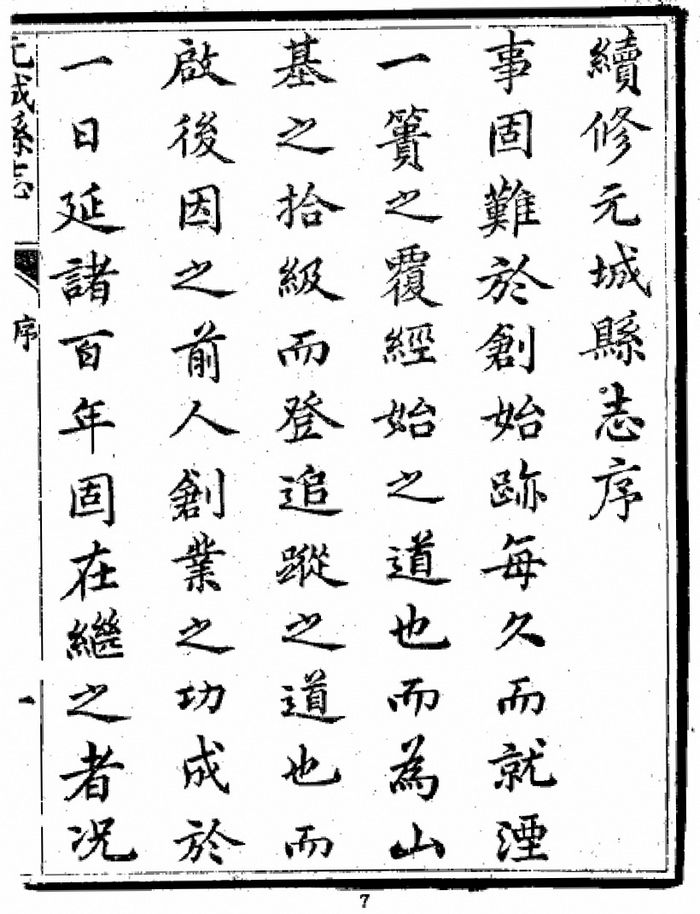 續修元城縣志序
事固難於創始跡每久而就湮
一簣之覆經始之道也而為山
基之拾級而登追蹤之道也而
啟後因之前人創業之功成於
一日延諸百年固在繼之者况
元城縣志
序
一
7